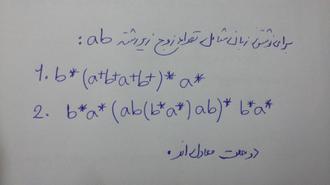 برای نوشتن زبانی شامل تعداد زوج زیررشته ab :
1. b* (a+b+a+b+)* a*
2. b*a* (ab(b*a*) ab)* b*a*
دو عبارت معادل اند.